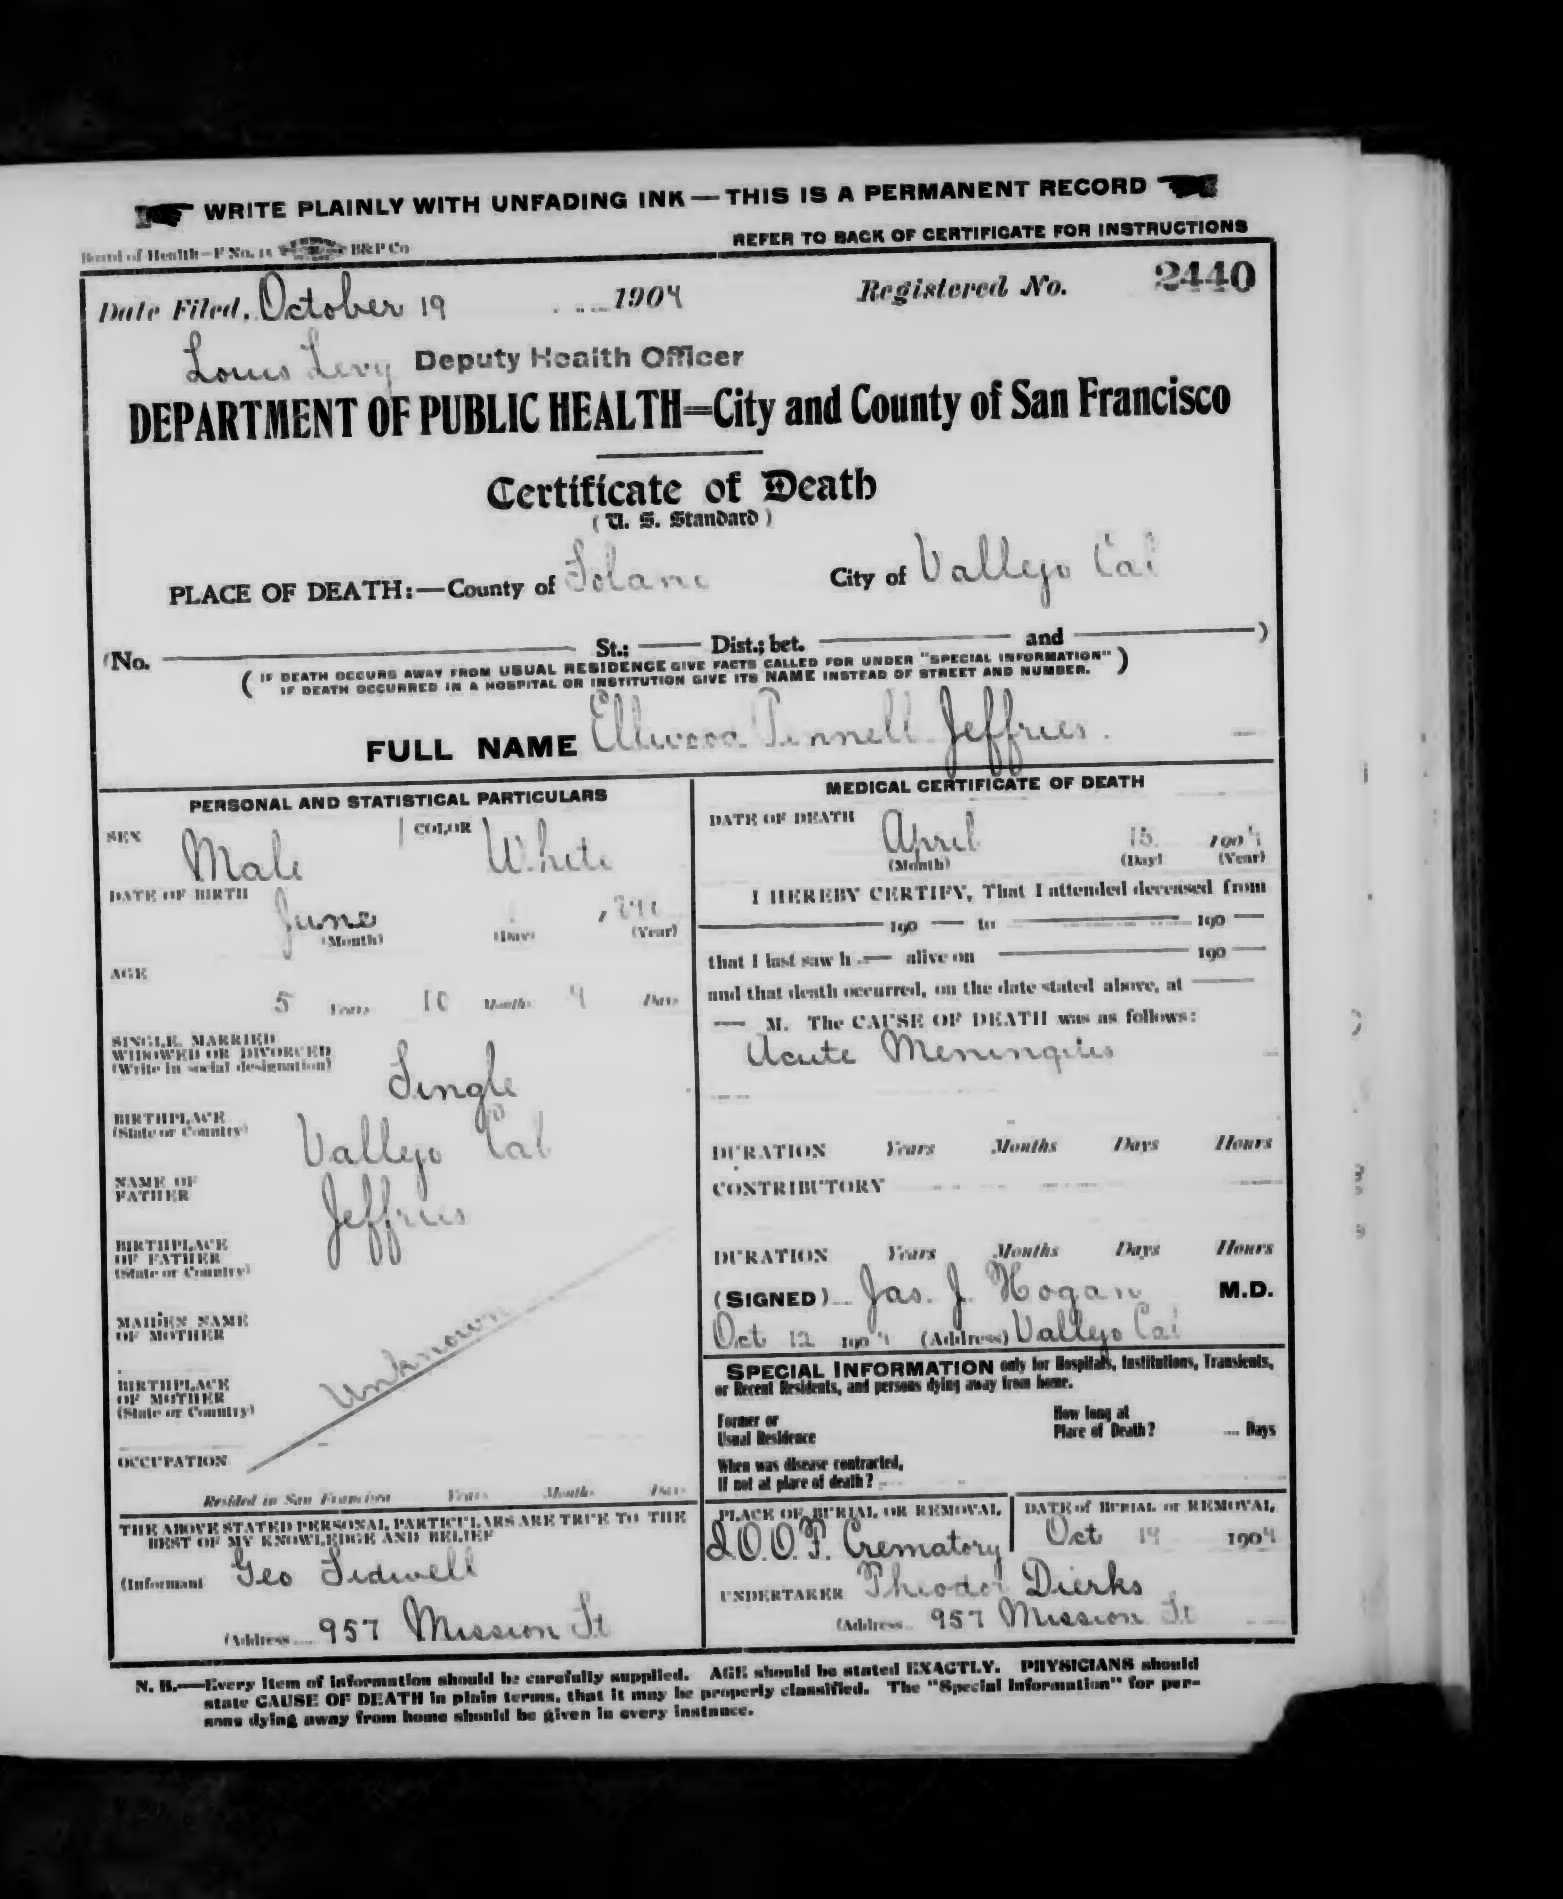 WRITE PLAINLY WITH UNFADING INK — THIS IS A PERMANENT RECORD
Board of Health—F No. 11 B&P Co
REFER TO BACK OF CERTIFICATE FOR INSTRUCTIONS
Date Filed, October 19 1904 Registered No. 2440
Louis Levy Deputy Health Officer
DEPARTMENT OF PUBLIC HEALTH=City and County of San Francisco
Certificate of Death
(U. S. Standard)
PLACE OF DEATH:—County of Solano City of Vallejo Cal
(No. St.; Dist.; bet. and )
(IF DEATH OCCURS AWAY FROM USUAL RESIDENCE GIVE FACTS CALLED FOR UNDER "SPECIAL INFORMATION"
IF DEATH OCCURRED IN A HOSPITAL OR INSTITUTION GIVE ITS NAME INSTEAD OF STREET AND NUMBER.)
FULL NAME Ellwood Pennell Jeffries.
PERSONAL AND STATISTICAL PARTICULARS
SEX Male COLOR White
DATE OF BIRTH June
(Month) (Day) (Year)
AGE
5 Years 10 Months 4 Days
SINGLE, MARRIED
WIDOWED OR DIVORCED
(Write in social designation) Single
BIRTHPLACE
(State or Country) Vallejo Cal
NAME OF
FATHER Jeffries
BIRTHPLACE
OF FATHER
(State or Country)
MAIDEN NAME
OF MOTHER
Unknown
BIRTHPLACE
OF MOTHER
(State or Country)
OCCUPATION
Resided in San Francisco Years Months Days
THE ABOVE STATED PERSONAL PARTICULARS ARE TRUE TO THE
BEST OF MY KNOWLEDGE AND BELIEF
(Informant Geo Sidwell
(Address 957 Mission St
MEDICAL CERTIFICATE OF DEATH
DATE OF DEATH April 15 1904
(Month) (Day) (Year)
I HEREBY CERTIFY, That I attended deceased from
190 — to 190 —
that I last saw h — alive on 190 —
and that death occurred, on the date stated above, at —
— M. The CAUSE OF DEATH was as follows:
Acute Meningitis
DURATION Years Months Days Hours
CONTRIBUTORY
DURATION Years Months Days Hours
(SIGNED) Jas. J. Hogan M.D.
Oct 12 1904 (Address) Vallejo Cal
SPECIAL INFORMATION only for Hospitals, Institutions, Transients,
or Recent Residents, and persons dying away from home.
Former or
Usual Residence
How long at
Place of Death? Days
When was disease contracted,
If not at place of death?
PLACE OF BURIAL OR REMOVAL DATE of BURIAL or REMOVAL
I.O.O.F. Crematory Oct 19 1904
UNDERTAKER Theodor Dierks
(Address 957 Mission St
N. B.—Every item of information should be carefully supplied. AGE should be stated EXACTLY. PHYSICIANS should
state CAUSE OF DEATH in plain terms, that it may be properly classified. The "Special Information" for per-
sons dying away from home should be given in every instance.